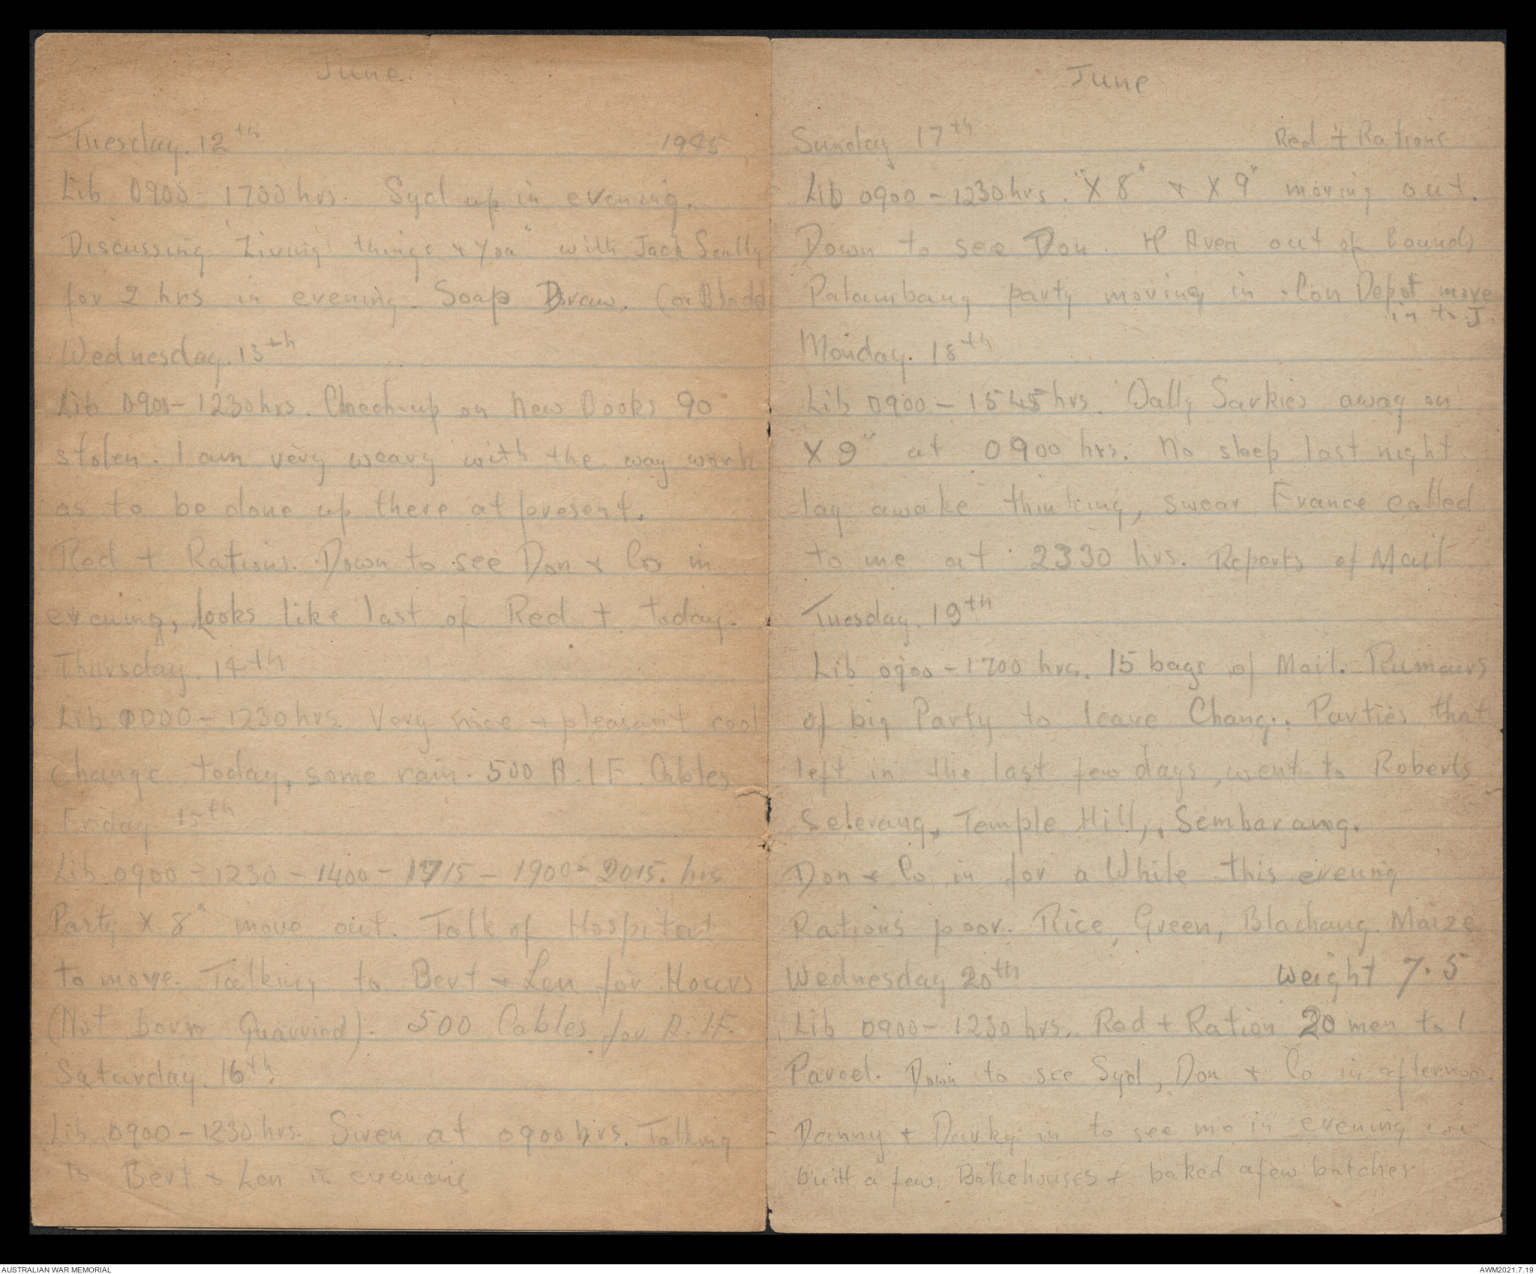 June.
Tuesday. 12th 1945
Lib 0900 - 1700 hrs. Syd up in evening.
Discussing "Living things & You" with Jack Scully
for 2 hrs in evening. Soap Draw. (or Blade
Wednesday. 13th
Lib 0900 - 1230 hrs. Check-up on New Books 90
stolen. I am very weary with the way work
as to be done up there at present.
Red + Rations. Down to see Don & Co in
evening, looks like last of Red + today.
Thursday. 14th
Lib 0900 - 1230 hrs. Very nice + pleasant cool
change today, some rain. 500 A.I.F. Cables
Friday. 15th
Lib 0900 - 1230 - 1400 - 1715 - 1900 - 2015. hrs
Party X 8" move out. Talk of Hospital
to move. Talking to Bert + Len for Hours
(Not born Quarrind). 500 Cables for A.I.F.
Saturday. 16th.
Lib 0900 - 1230 hrs. Siren at 0900 hrs. Talking
to Bert & Len in evening
June
Sunday 17th Red + Rations
Lib 0900 - 1230 hrs. "X 8" & X 9" moving out.
Down to see Don. H Area out of bounds
Palambang party moving in. Con Depot move
in to J.
Monday. 18th
Lib 0900 - 1545 hrs. Wally Sarkies away on
X 9" at 0900 hrs. No sleep last night
lay awake thinking, swear France called
to me at 2330 hrs. Reports of Mail
Tuesday. 19th
Lib 0900 - 1700 hrs. 15 bags of Mail. Rumours
of big Party to leave Changi. Parties that
left in the last few days, went to Roberts
Selerang, Temple Hill, Sembarang.
Don & Co in for a While this evening
Rations poor. Rice, Green, Blachang, Maize
Wednesday 20th Weight 7.5
Lib 0900 - 1230 hrs. Red + Ration 20 men to 1
Parcel. Down to see Syd, Don & Co in afternoon.
Danny + Darky in to see me in evening
built a few Bakehouses + baked a few batches
AUSTRALIAN WAR MEMORIAL
AWM2021.7.19